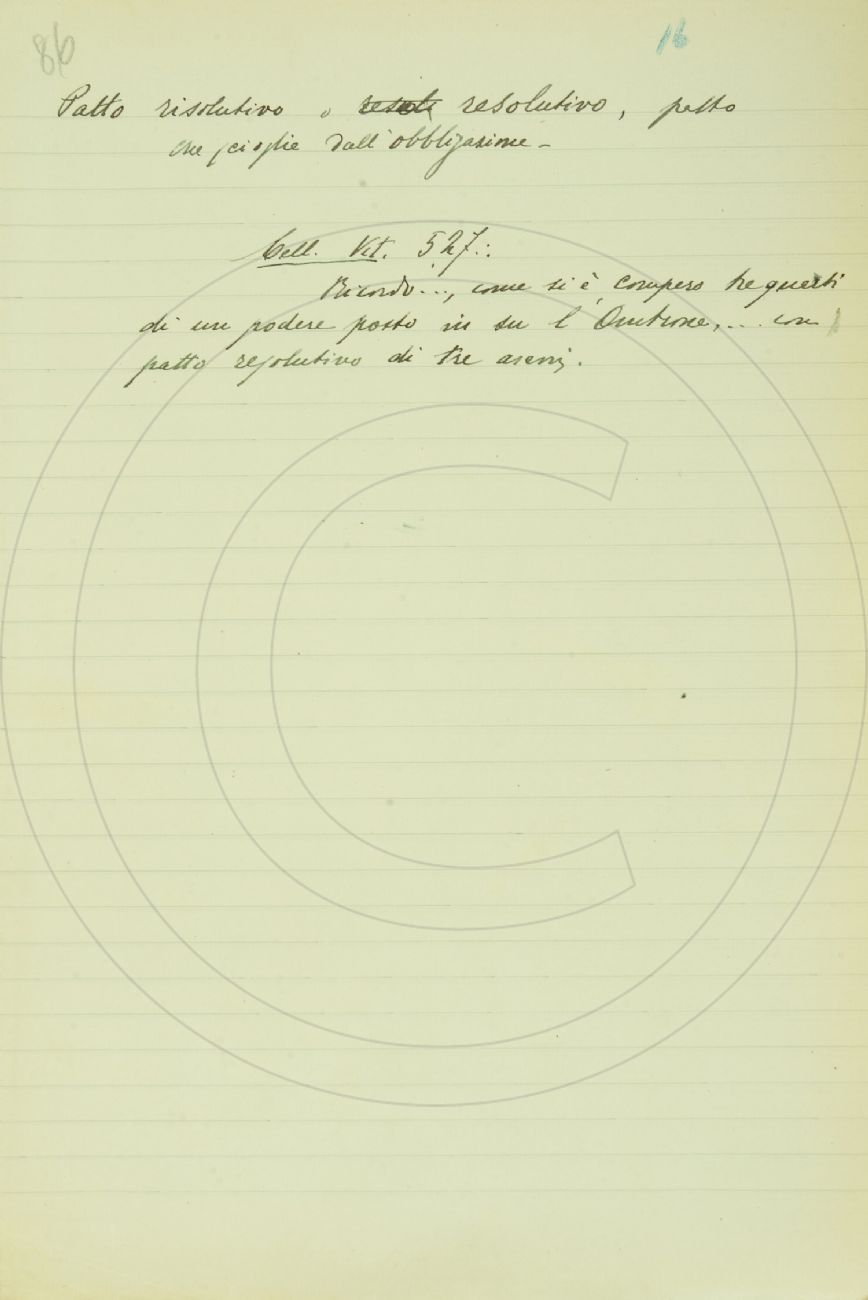 86
16
Patto risolutivo o resolu resolutivo, patto
che scioglie dall'obbligazione -
Cell. Vit. 527:
Ricordo..., come si è compero tre quarti
di un podere posto in su l'Ombrone,... con
patto resolutivo di tre